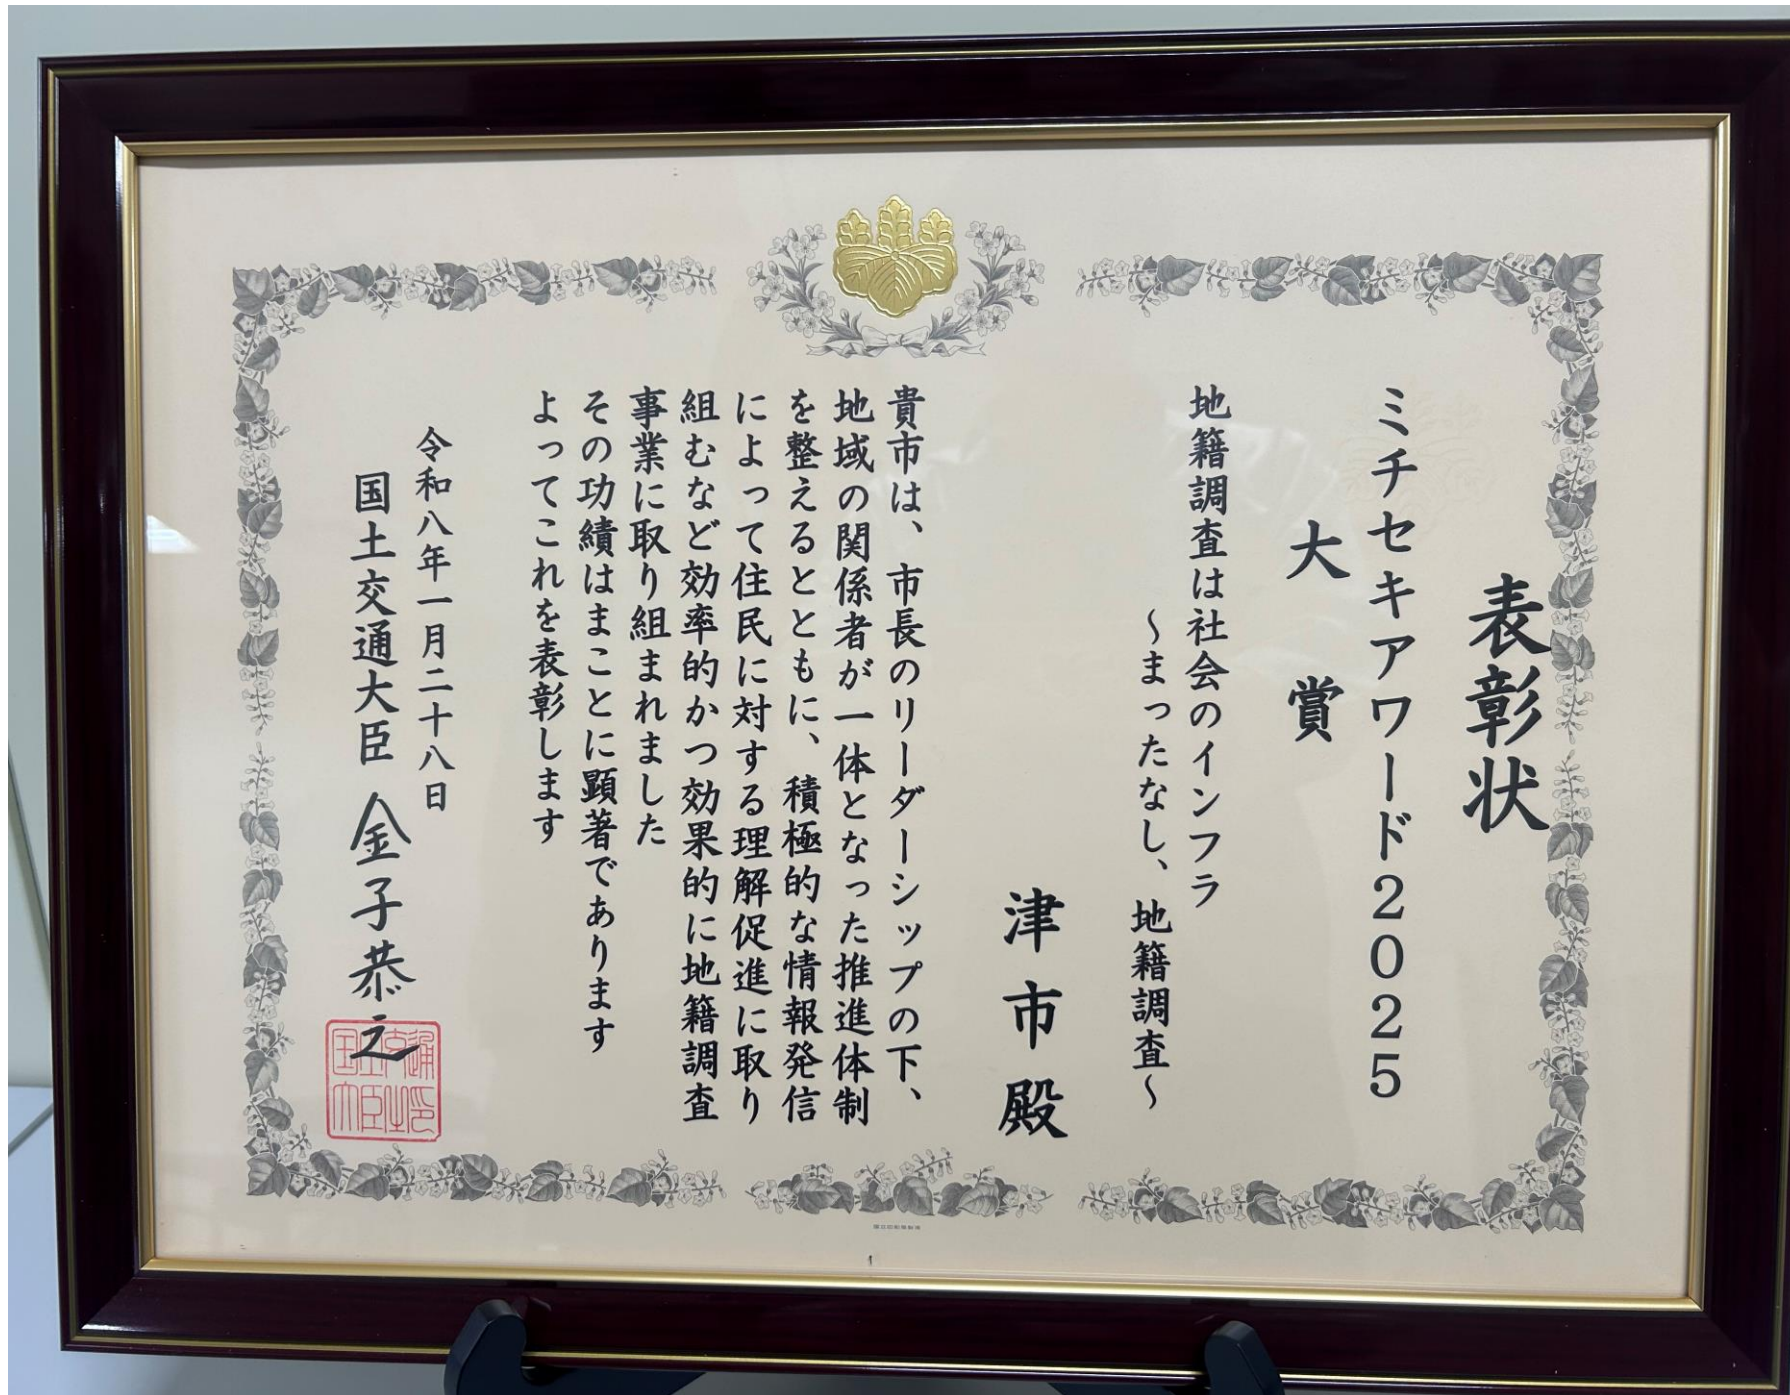 表彰状
ミチセキアワード2025
大賞
地籍調査は社会のインフラ
～まったなし、地籍調査～
津市殿
貴市は、市長のリーダーシップの下、
地域の関係者が一体となった推進体制
を整えるとともに、積極的な情報発信
によって住民に対する理解促進に取り
組むなど効率的かつ効果的に地籍調査
事業に取り組まれました
その功績はまことに顕著であります
よってこれを表彰します
令和八年一月二十八日
国土交通大臣 金子恭之
国土交通大臣之印